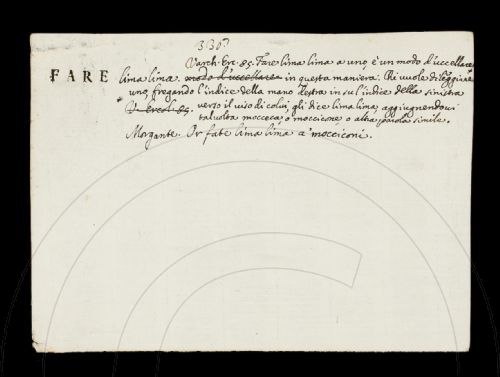 330
Varch. Erc. 85. Fare lima lima a uno è un modo d'uccellare
FARE lima lima. modo d'uccellare in questa maniera. Chi vuole dileggiare
uno, fregando l'indice della mano destra in sul'indice della sinistra
V. Ercol. 85. verso il viso di colui, gli dice lima lima, aggiugnendovi
talvolta mocceca, o moccicone o altra parola simile.
Morgante. Or fate lima lima a' mocciconi.